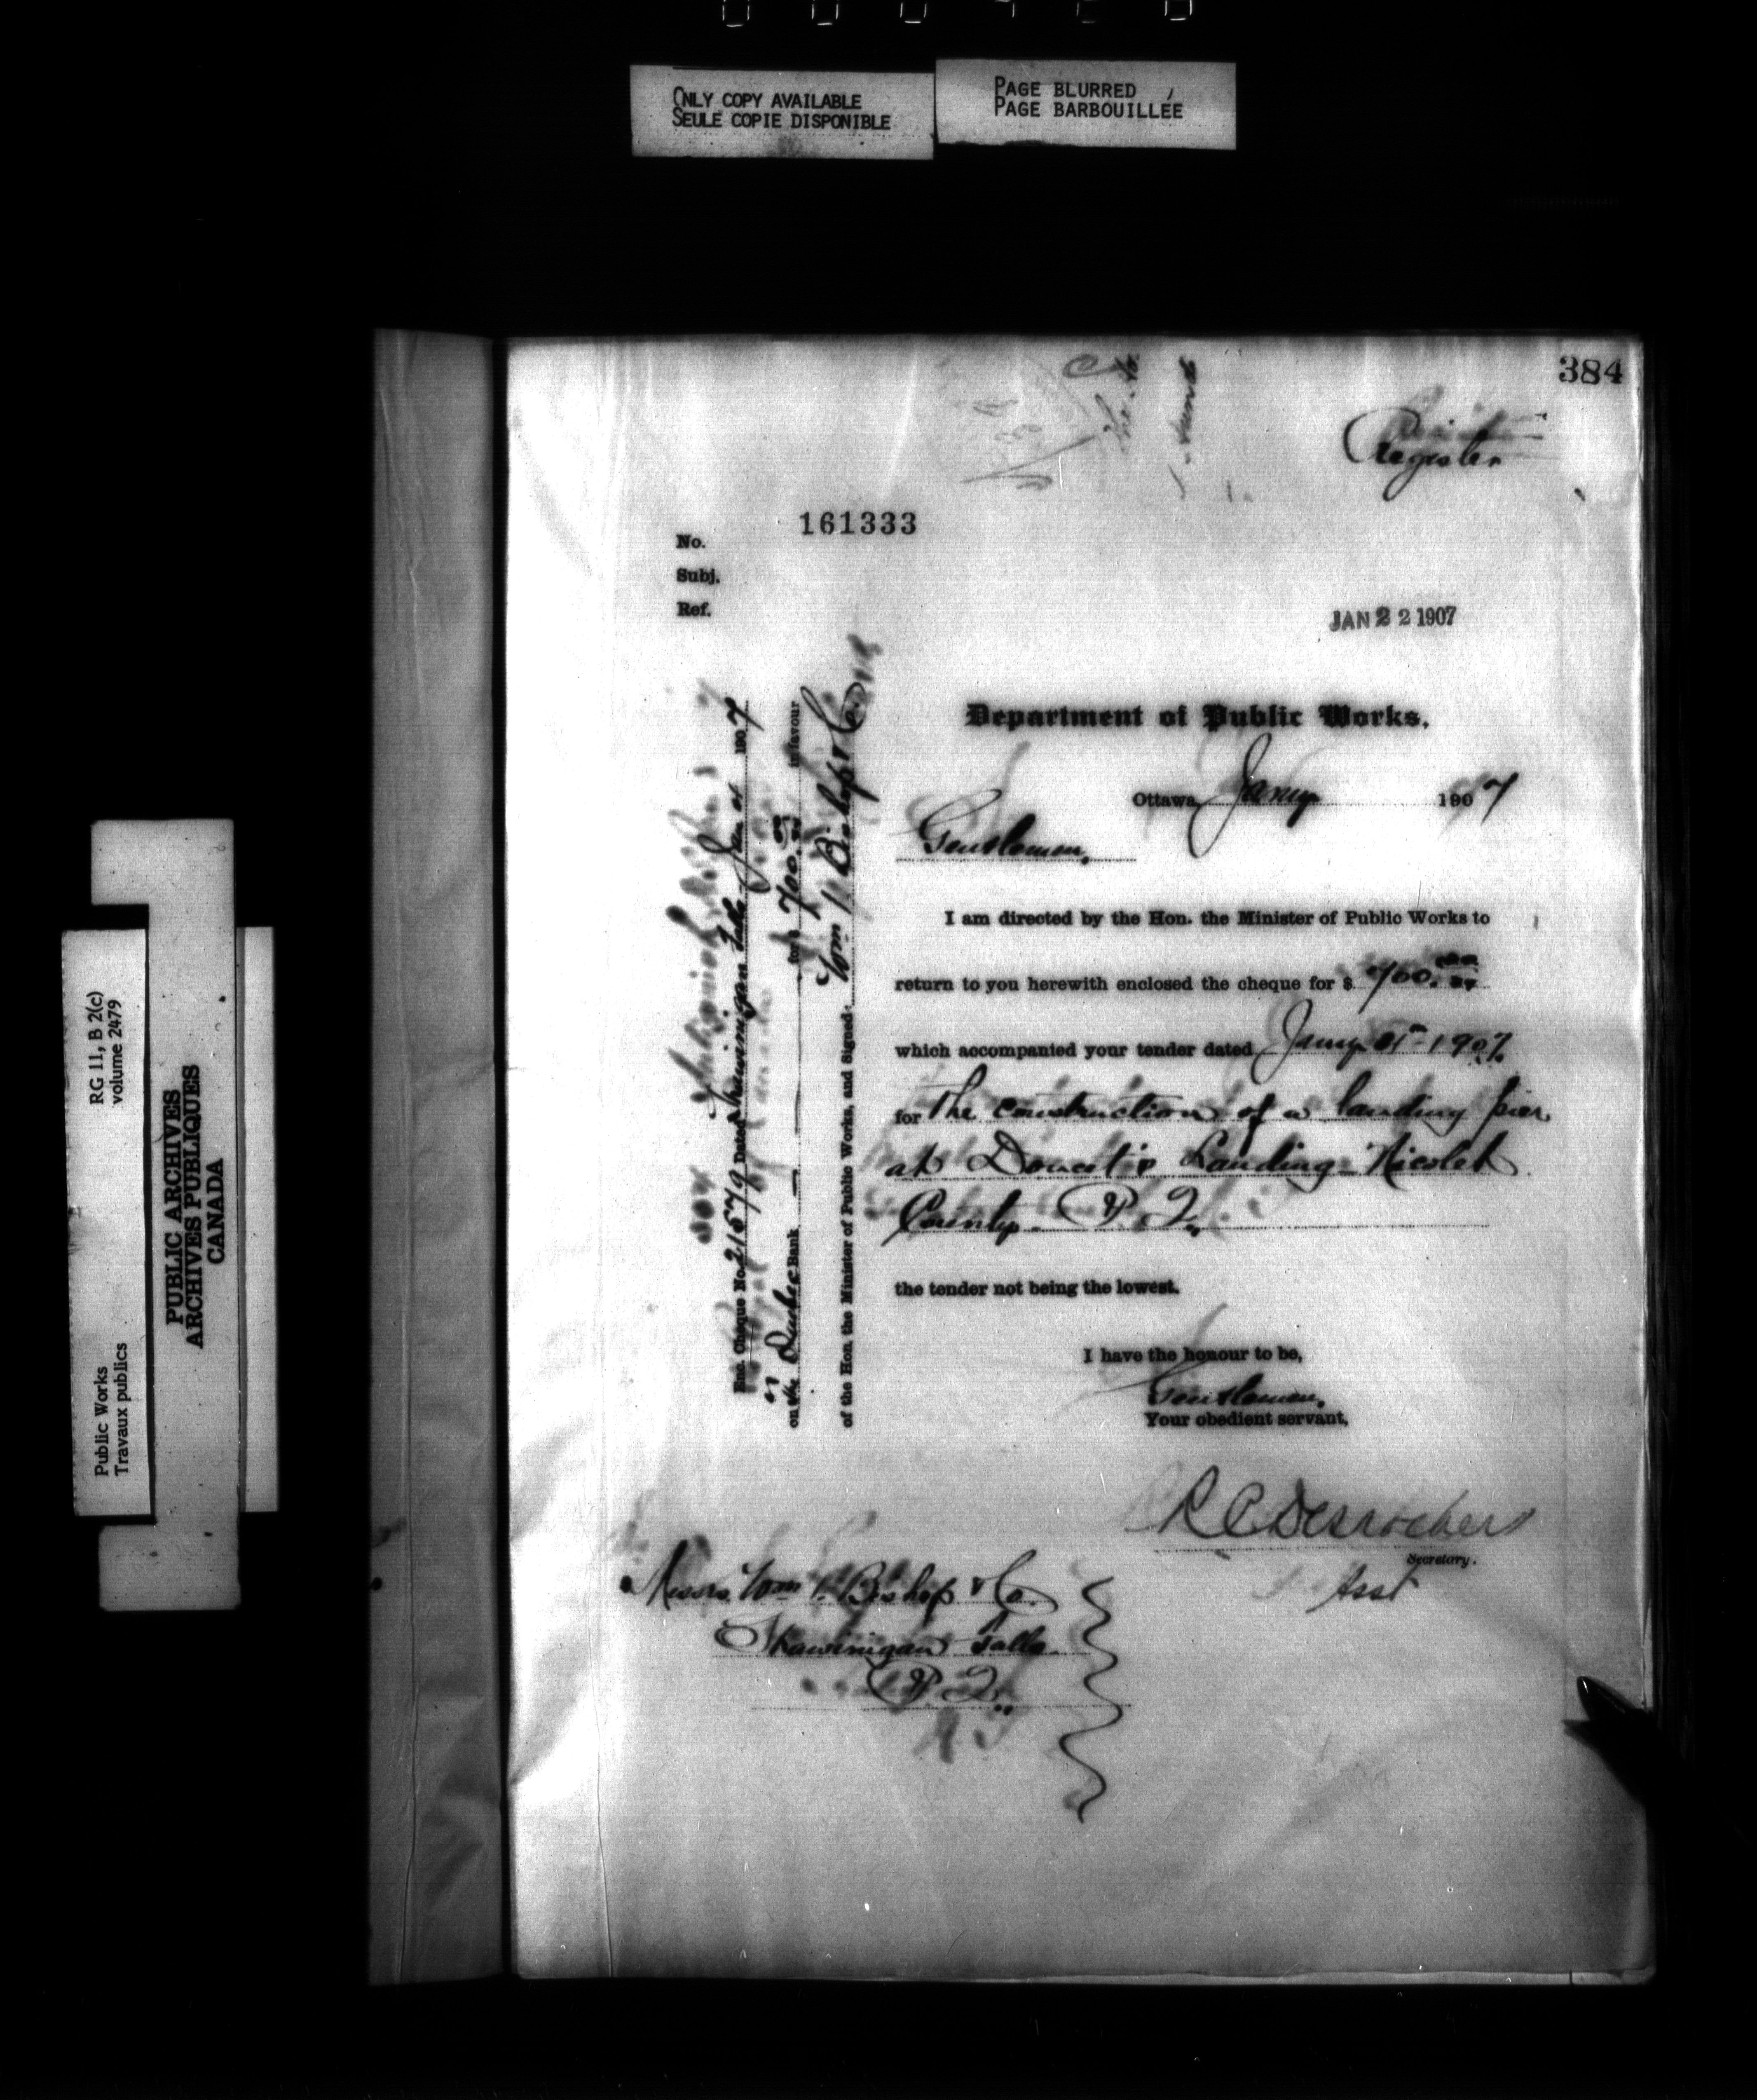 ONLY COPY AVAILABLE
SEULE COPIE DISPONIBLE
PAGE BLURRED
PAGE BARBOUILLÉE
384
Register
161333
No.
Subj.
Ref.
JAN 22 1907
Department of Public Works.
Ottawa, Jany 1907
Gentlemen,
I am directed by the Hon. the Minister of Public Works to
return to you herewith enclosed the cheque for $ 700.00
which accompanied your tender dated Jany 21st 1907
for the construction of a landing pier
at Doucet's Landing Nicolet
County P Q.
the tender not being the lowest.
I have the honour to be,
Gentlemen,
Your obedient servant,
R C Desrochers
Secretary.
Asst
Messrs. Wm I. Bishop & Co.
Shawinigan Falls.
P. Q.
Enc. Cheque No. 21679 Dated Shawinigan Falls Jan 21 1907
on the Quebec Bank for $ 700.00 in favour
of the Hon. the Minister of Public Works, and Signed: Wm I. Bishop & Co
RG 11, B 2(c)
volume 2479
Public Works
Travaux publics
PUBLIC ARCHIVES
ARCHIVES PUBLIQUES
CANADA